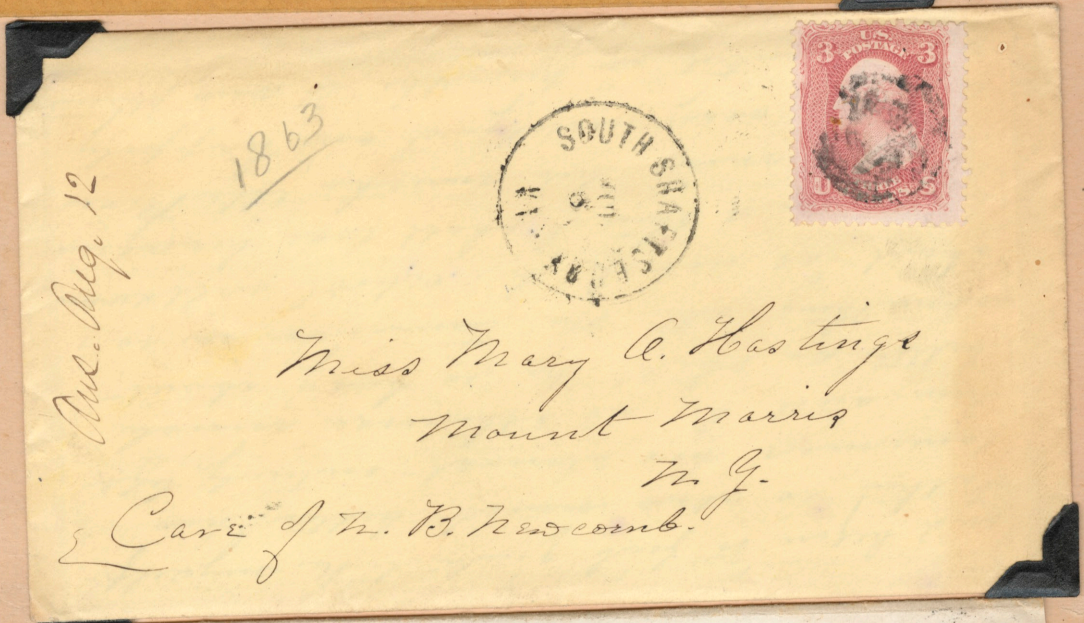 1863
Ans. Aug. 12
SOUTH SHAFTSBURY VT
3 U.S. POSTAGE 3
U S
Miss Mary A. Hastings
Mount Morris
N. Y.
Care of N. B. Newcomb.